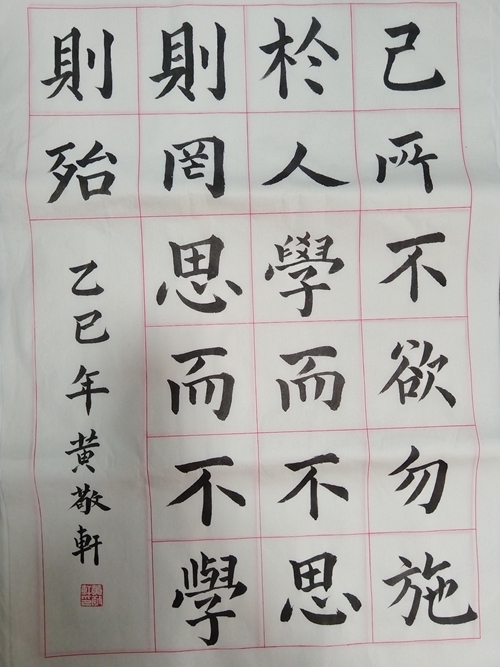 己所不欲勿施
於人學而不思
則罔思而不學
則殆
乙巳年黄敬軒